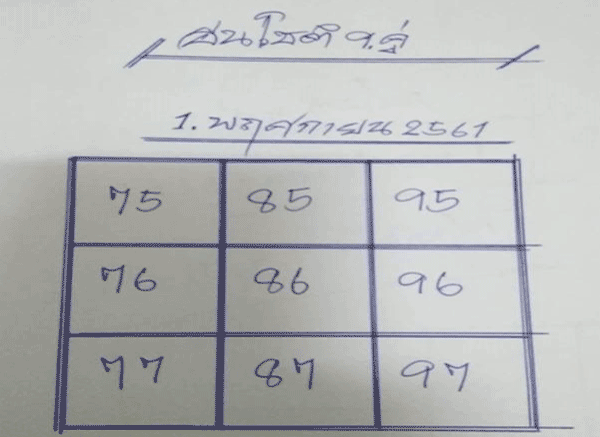 ชนโชค 9.คู่
1. พฤศกายน 2561
75 85 95
76 86 96
77 87 97